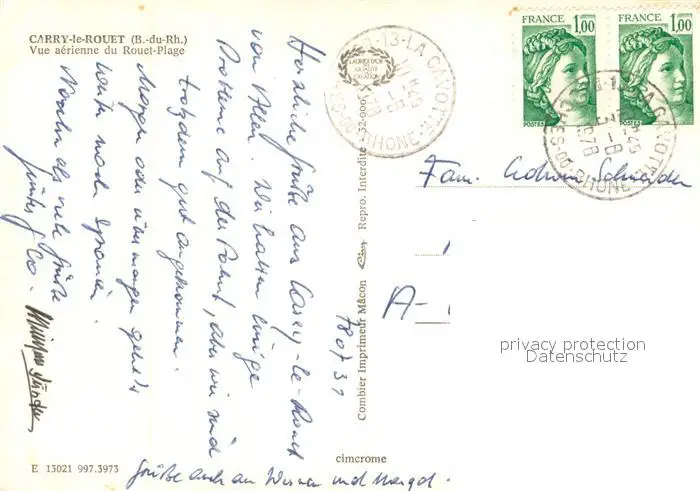 CARRY-le-ROUET (B.-du-Rh.)
Vue aérienne du Rouet-Plage
Herzliche Grüße aus Carry-le-Rouet
von allen. Wir hatten einige
Probleme auf der Fahrt, aber wir sind
trotzdem gut angekommen.
Morgen oder übermorgen geht's
weiter nach Spanien.
Nochmals viele Grüße
Günter & Co.
Grüße auch an Werner und Margot.
E 13021 997.3973
Combier Imprimeur Mâcon
Repro. Interdite 32-000
LAURIER D'OR
DE LA
QUALITÉ
CRÉATION
cimcrome
780731
13-LA GAVOTTE
BES-DU-RHONE
FRANCE 1,00
POSTES
FRANCE 1,00
POSTES
LA GAVOTTE
1978
BES-DU-RHONE
Fam. Schneider
A-
privacy protection
Datenschutz